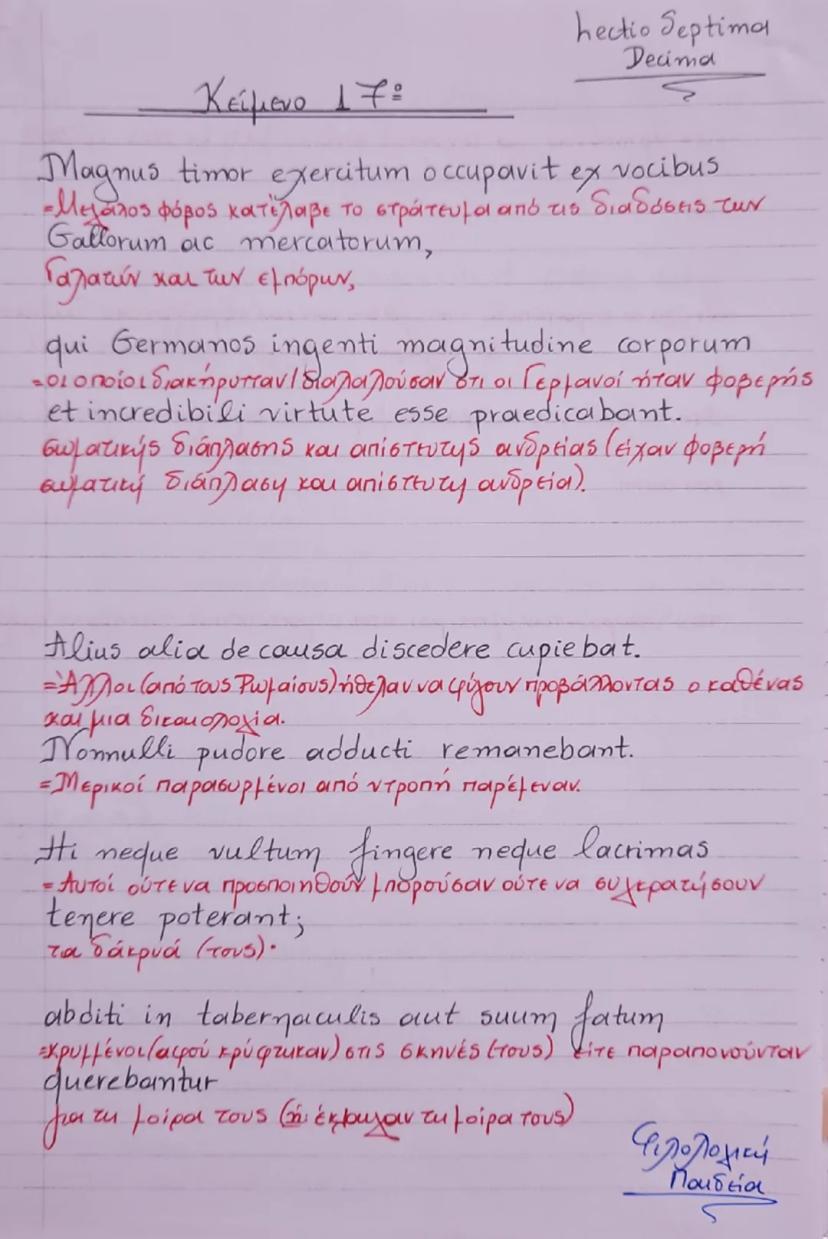 Lectio Septima
Decima
Κείμενο 17º
Magnus timor exercitum occupavit ex vocibus
=Μεγάλος φόβος κατέλαβε το στράτευμα από τις διαδόσεις των
Gallorum ac mercatorum,
Γαλατών και των εμπόρων,
qui Germanos ingenti magnitudine corporum
=οι οποίοι διακήρυτταν/διαλαλούσαν ότι οι Γερμανοί ήταν φοβερής
et incredibili virtute esse praedicabant.
σωματικής διάπλασης και απίστευτης ανδρείας (είχαν φοβερή
σωματική διάπλαση και απίστευτη ανδρεία).
Alius alia de causa discedere cupiebat.
=Άλλοι (από τους Ρωμαίους) ήθελαν να φύγουν προβάλλοντας ο καθένας
και μια δικαιολογία.
Nonnulli pudore adducti remanebant.
=Μερικοί παρασυρμένοι από ντροπή παρέμεναν.
Hi neque vultum fingere neque lacrimas
=Αυτοί ούτε να προσποιηθούν μπορούσαν ούτε να συγκρατήσουν
tenere poterant;
τα δάκρυά (τους)·
abditi in tabernaculis aut suum fatum
=κρυμμένοι (αφού κρύφτηκαν) στις σκηνές (τους) είτε παραπονούνταν
querebantur
για τη μοίρα τους (ή έκλαιγαν τη μοίρα τους)
Φιλολογική
Παιδεία